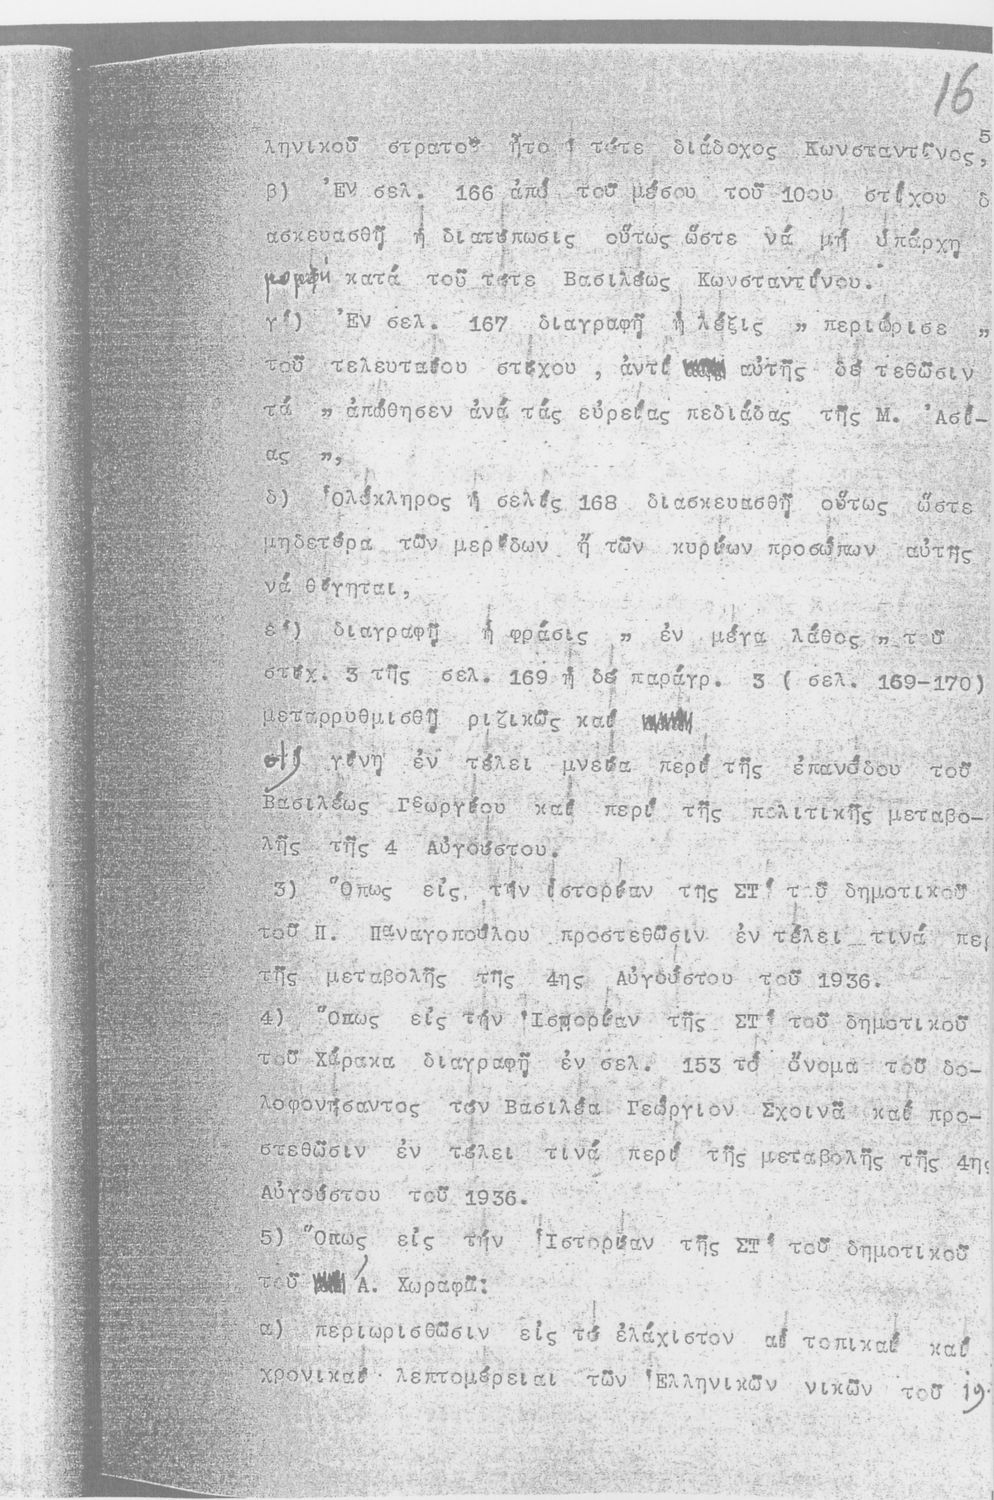 16
5
ληνικοῦ στρατοῦ ἦτο ὁ τότε διάδοχος Κωνσταντῖνος,
β) Ἐν σελ. 166 ἀπό τοῦ μέσου τοῦ 10ου στίχου δ
ασκευασθῇ ἡ διατύπωσις οὕτως ὥστε νά μή ὑπάρχῃ
μομφή κατά τοῦ τότε Βασιλέως Κωνσταντίνου.
γ´) Ἐν σελ. 167 διαγραφῇ ἡ λέξις „ περιώρισε „
τοῦ τελευταίου στίχου , ἀντί αὐτῆς δέ τεθῶσιν
τά „ ἀπώθησεν ἀνά τάς εὐρείας πεδιάδας τῆς Μ. Ἀσί-
ας „,
δ) Ὁλόκληρος ἡ σελίς 168 διασκευασθῇ οὕτως ὥστε
μηδετέρα τῶν μερίδων ἤ τῶν κυρίων προσώπων αὐτῆς
νά θίγηται,
ε´) διαγραφῇ ἡ φράσις „ ἐν μέγα λάθος „ τοῦ
στίχ. 3 τῆς σελ. 169 ἡ δέ παράγρ. 3 ( σελ. 169-170)
μεταρρυθμισθῇ ριζικῶς καί
στ) γίνῃ ἐν τέλει μνεία περί τῆς ἐπανόδου τοῦ
Βασιλέως Γεωργίου καί περί τῆς πολιτικῆς μεταβο-
λῆς τῆς 4 Αὐγούστου.
3) Ὅπως εἰς, τήν ἱστορίαν της ΣΤ´ τοῦ δημοτικοῦ
τοῦ Π. Παναγοπούλου προστεθῶσιν ἐν τέλει τινά περ
τῆς μεταβολῆς τῆς 4ης Αὐγούστου τοῦ 1936.
4) Ὅπως εἰς τήν Ἱστορίαν τῆς ΣΤ´ τοῦ δημοτικοῦ
τοῦ Χάρακα διαγραφῇ ἐν σελ. 153 τό ὄνομα τοῦ δο-
λοφονήσαντος τόν Βασιλέα Γεώργιον Σχοινᾶ καί προ-
στεθῶσιν ἐν τέλει τινά περί τῆς μεταβολῆς τῆς 4ης
Αὐγούστου τοῦ 1936.
5) Ὅπως εἰς τήν Ἱστορίαν τῆς ΣΤ´ τοῦ δημοτικοῦ
τοῦ Ἀ. Χωραφᾶ:
α) περιωρισθῶσιν εἰς τό ἐλάχιστον αἱ τοπικαί καί
χρονικαί λεπτομέρειαι τῶν Ἑλληνικῶν νικῶν τοῦ 19